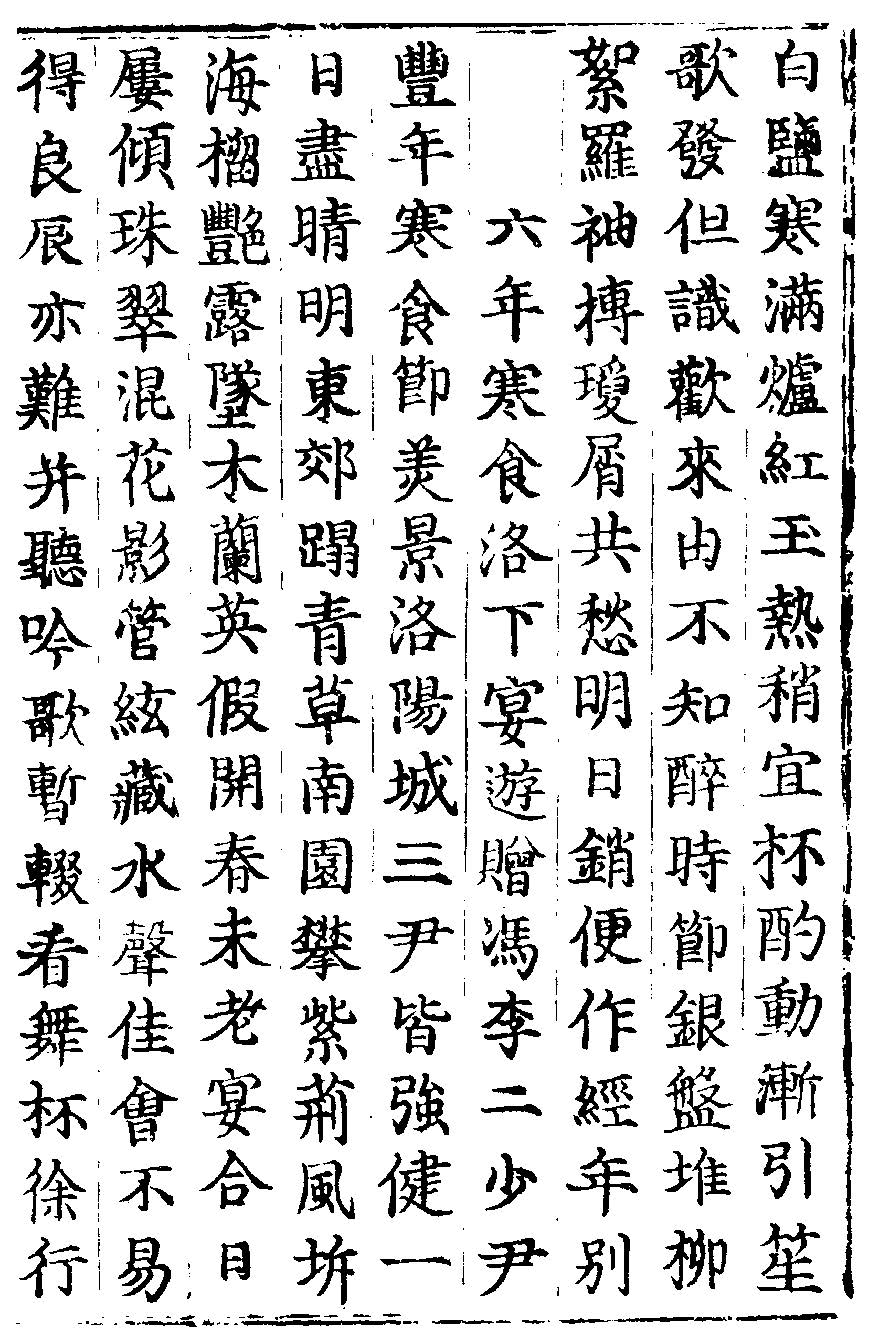 白鹽寒滿爐紅玉熱稍宜杯酌動漸引笙
歌發但識歡來由不知醉時節銀盤堆柳
絮羅袖摶瓊屑共愁明日銷便作經年別
六年寒食洛下宴遊贈馮李二少尹
豐年寒食節美景洛陽城三尹皆強健一
日盡晴明東郊蹋青草南園攀紫荊風坼
海榴艷露墜木蘭英假開春未老宴合日
屢傾珠翠混花影管絃藏水聲佳會不易
得良辰亦難并聽吟歌暫輟看舞杯徐行